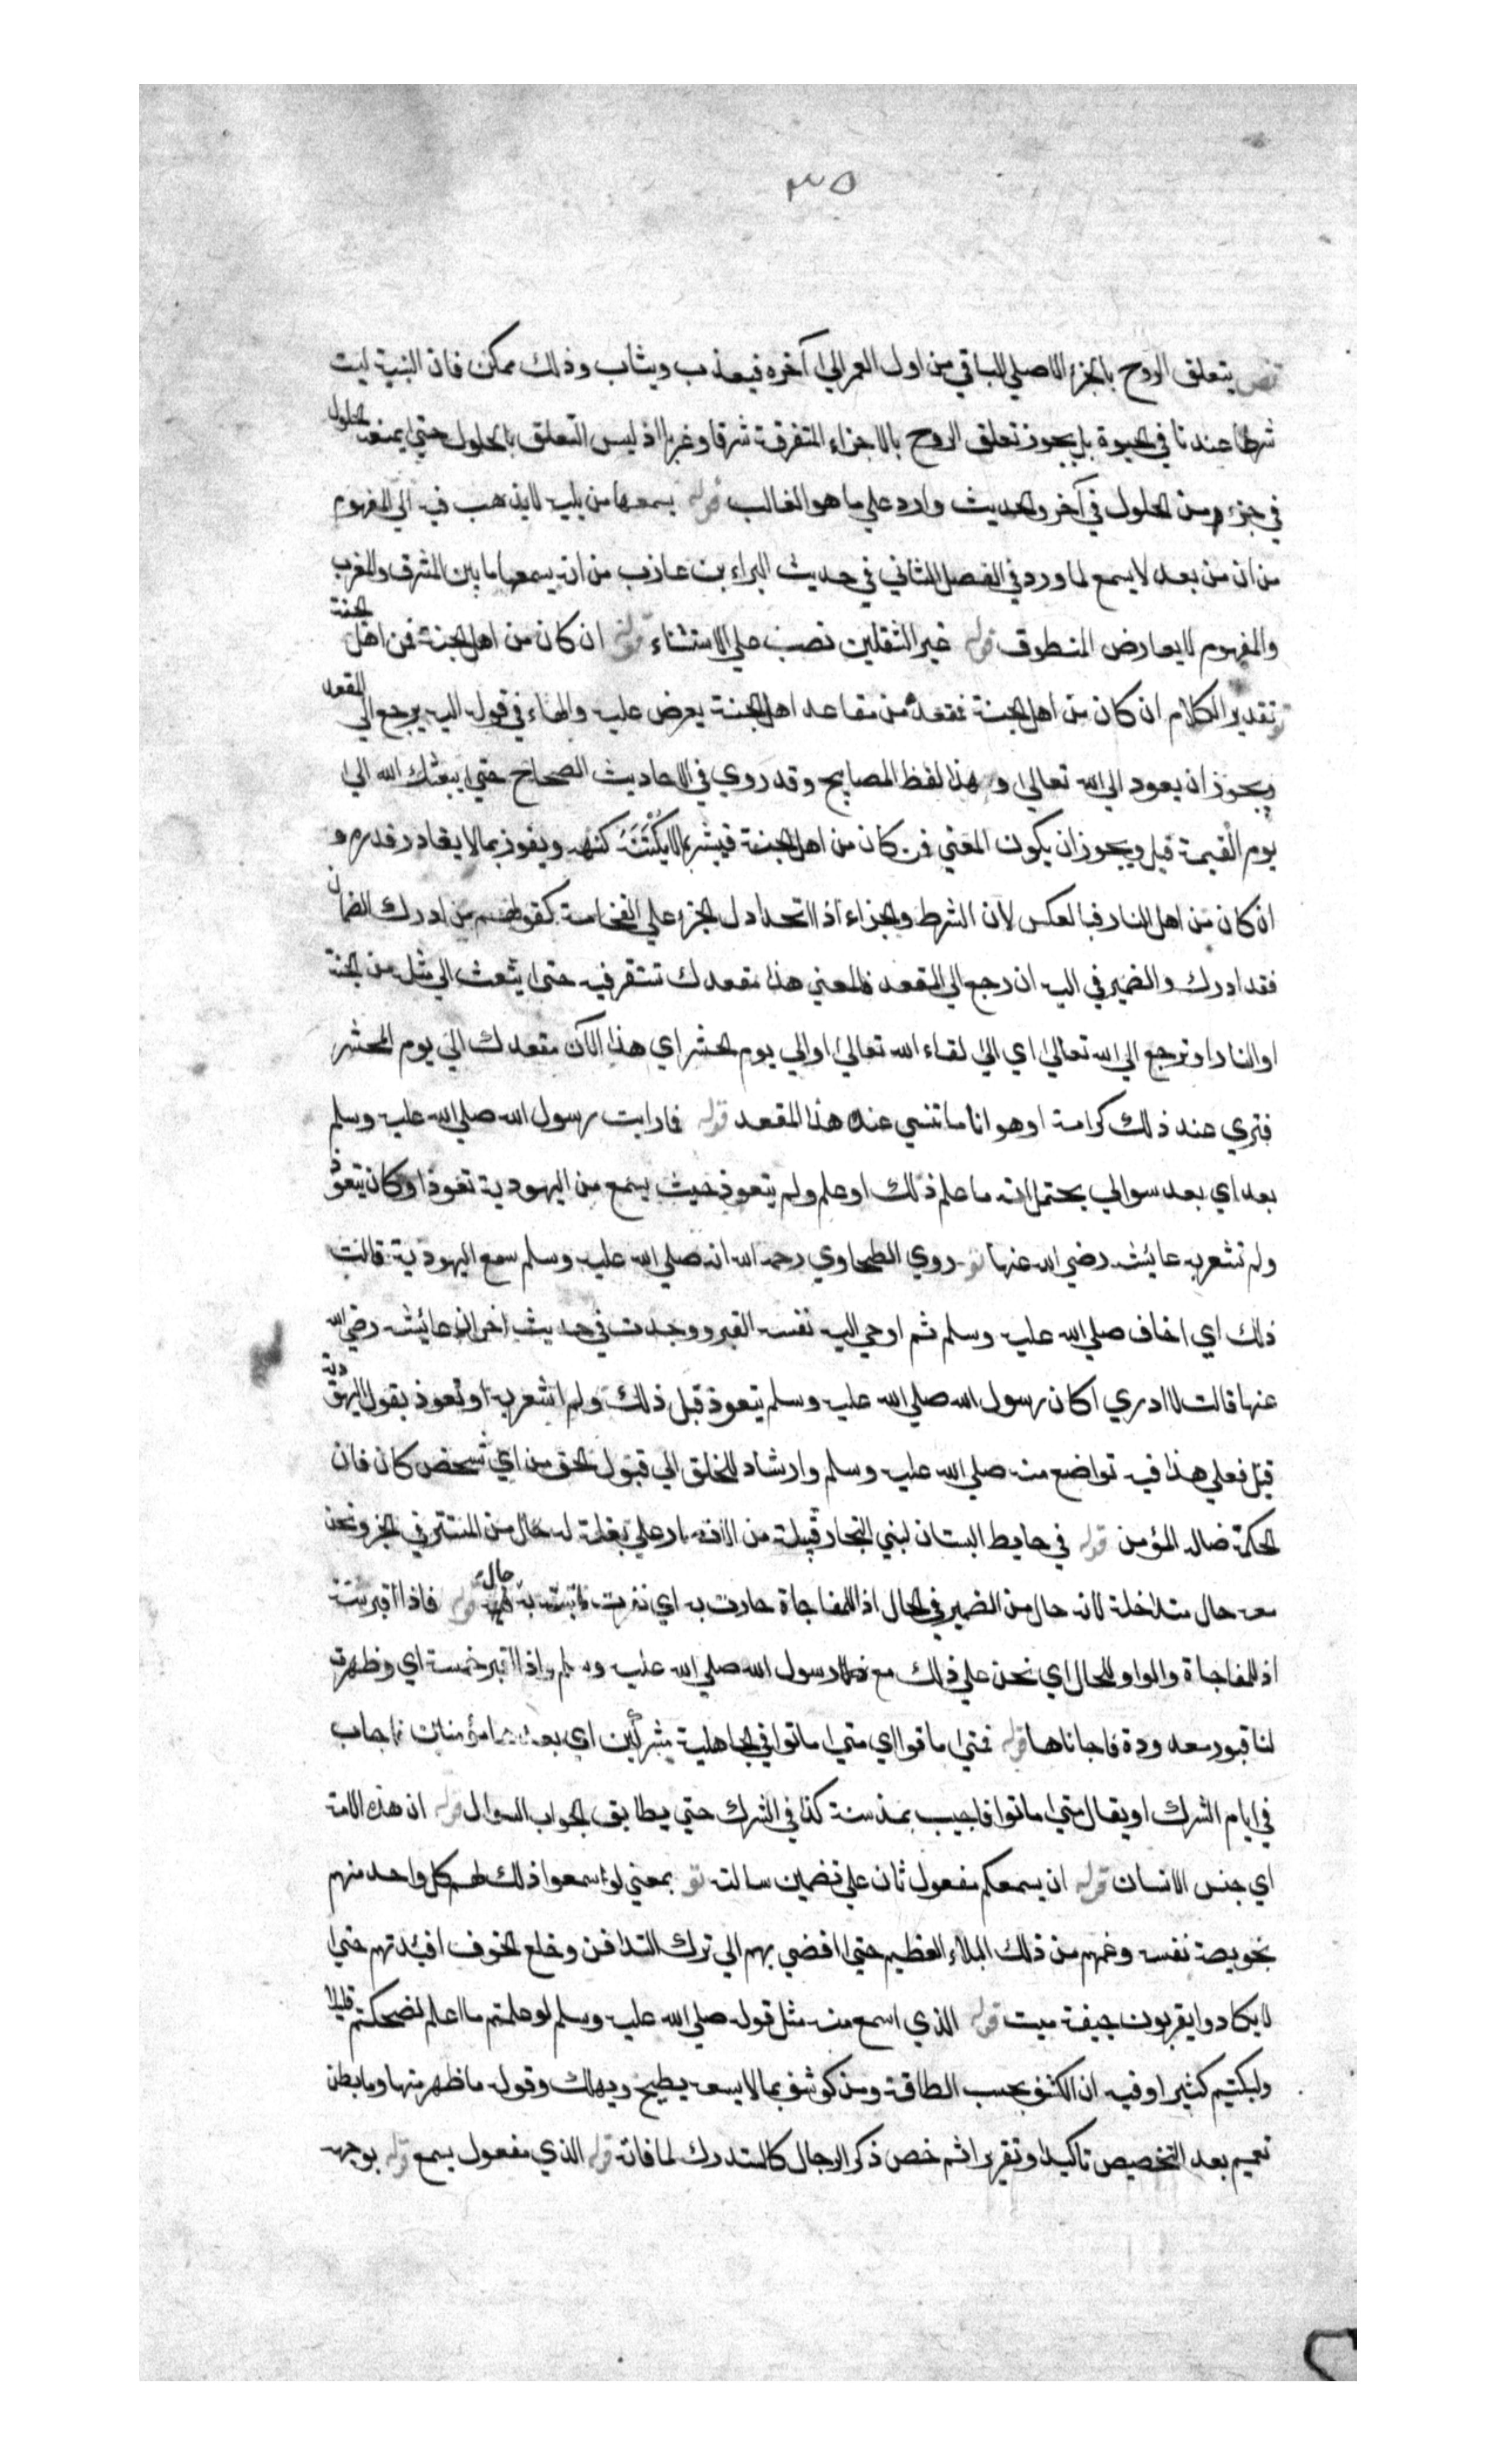 ٣٥
قض يتعلق الروح بالجزء الاصلي الباقي من اول العمر الي آخره فيعذب ويثاب وذلك ممكن فان البنية ليت
شرطا عندنا في الحيوة بل يجوز تعلق الروح بالاجزاء المتفرقة شرقا وغربا اذ ليس التعلق بالحلول حتي يمنعه الحلول
في جزء من الحلول في آخر والحديث وارد علي ما هو الغالب قوله يسمعها من يليه لايذهب فيه الي المفهوم
من ان من بعد لا يسمع لما ورد في الفصل الثاني في حديث البراء بن عازب من انه يسمعها ما بين المشرق والمغرب
والمفهوم لا يعارض المنطوق قوله غير الثقلين نصب علي الاستثناء قوله ان كان من اهل الجنة فمن اهل الجنة
تو تقدير الكلام ان كان من اهل الجنة فمقعده من مقاعد اهل الجنة يعرض عليه والهاء في قوله اليه يرجع الي المقعد
ويجوز ان يعود الي الله تعالي وهذا لفظ المصابيح وقد روي في الاحاديث الصحاح حتي يبعثك الله الي
يوم القيمة قيل ويجوز ان يكون المعني فمن كان من اهل الجنة فيبشر بما لا يكتنه كنهه ويفوز بما لا يقادر قدره و
ان كان من اهل النار فبالعكس لان الشرط والجزاء اذا اتحدا دل الجزء علي الفخامة كقولهم من ادرك الضمان
فقد ادرك والضمير في اليه ان رجع الي المقعد فالمعني هذا مقعدك تستقر فيه حتي يثعث الي مثله من الجنة
او النار او ترجع الي الله تعالي اي الي لقاء الله تعالي او الي يوم الحشر اي هذا الآن مقعدك الي يوم المحشر
فتري عند ذلك كرامة او هوانا ما تنسي عنده هذا المقعد قوله فارايت رسول الله صلي الله عليه وسلم
بعد اي بعد سوالي يحتمل انه ما علم ذلك او علم ولم يتعوذ حيث يسمع من اليهودية تعوذ او كان يتعوذ
ولم تشعر به عايشه رضي الله عنها تو روي الطحاوي رحمه الله انه صلي الله عليه وسلم سمع اليهودية قالت
ذلك اي اخاف صلي الله عليه وسلم ثم اوحي اليه نفسه القبر ووجدت في حديث اخر ان عائيشه رضي الله
عنها قالت لا ادري اكان رسول الله صلي الله عليه وسلم يتعوذ قبل ذلك ولم اشعر به او تعوذ بقول اليهودية
قيل فعلي هذا فيه تواضع منه صلي الله عليه وسلم وارشاد للخلق الي قبول الحق من اي شخص كان فان
الحكمة ضالة المؤمن قوله في حايط البستان لبني النجار قبيلة من الانصار علي بغلة له حال من المستتر في الخبر ونحن
معه حال متداخلة لانه حال من الضمير في الحال اذ للمفاجاة حادت به اي نفرت به حال قوله فاذا اقبر ستة
اذ للمفاجاة والواو للحال اي نحن علي ذلك مع رسول الله صلي الله عليه وسلم واذا اقبر خمسة اي وظهرت
لنا قبور معدودة فاجاناها قوله فمتي ماتوا اي متي ماتوا في الجاهلية مشركين او بعدها مؤمنين فاجاب
في ايام الشرك او يقال متي ماتوا فاجيب بمذ سنة كذا في الشرك حتي يطابق الجواب السوال قوله ان هذه الامة
اي جنس الانسان قوله ان يسمعكم مفعول ثان علي تضمين سالت تو بمعني لو اسمعوا ذلك لهم كل واحد منهم
بخويصة نفسه وعمهم من ذلك البلاء العظيم حتي افضي بهم الي ترك التدافن وخلع الخوف افيدتهم حتي
لا يكادوا يقربون جيفة ميت قوله الذي اسمع منه مثل قوله صلي الله عليه وسلم لو علمتم ما اعلم لضحكتم قليلا
ولبكيتم كثيرا وفيه ان الكشف بحسب الطاقة ومن كوشف بما لا يسعه يطيح ويهلك وقوله ما ظهر منها وما بطن
تعميم بعد التخصيص تاكيدا وتقريرا ثم خص ذكر الرجال كالمستدرك لما فاته قوله الذي مفعول يسمع قوله بوجهه